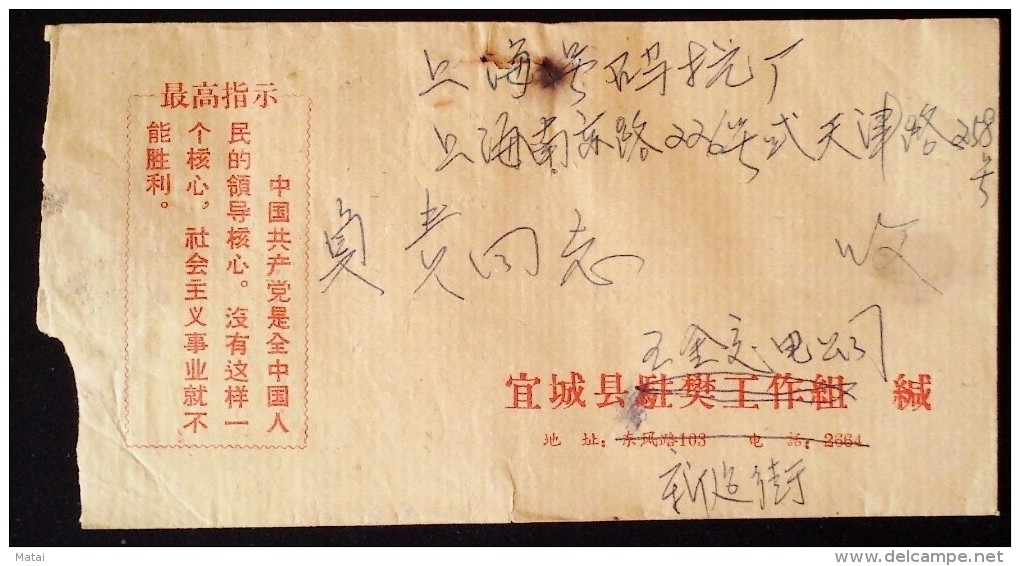 最高指示
中国共产党是全中国人
民的領导核心。沒有这样一
个核心，社会主义事业就不
能胜利。
上海
上海南京路 天津路258号
同志 收
五金交电公司
宜城县駐樊工作組 缄
地 址：东风路103 电 話：2664
街
Matai
delcampe.net